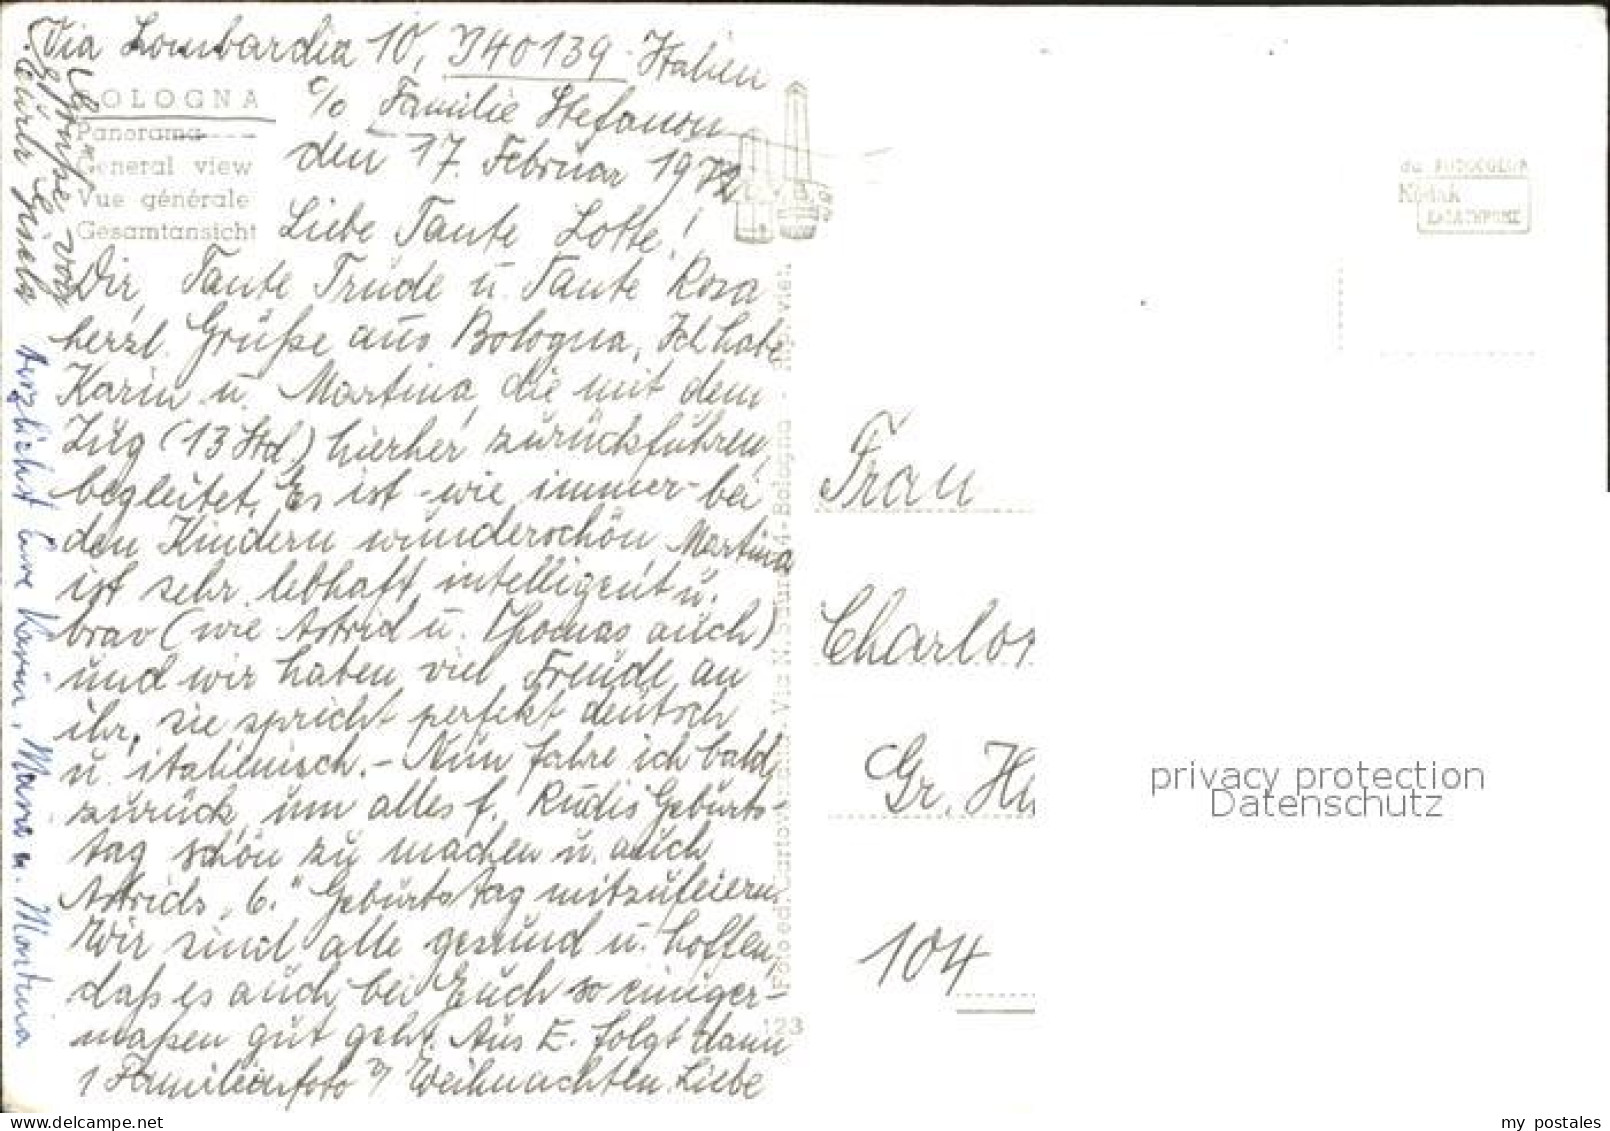 Via Lombardia 10, I40139 - Italien
c/o Familie Stefanon
den 17. Februar 1972
BOLOGNA
Panorama
General view
Vue générale
Gesamtansicht
Liebe Tante Lotte!
Dir, Tante Trude u. Tante Rosa
herzl. Grüße aus Bologna. Ich habe
Karin u. Martina, die mit dem
Zug (13 Std.) hierher zurückführen,
begleitet. Es ist - wie immer - bei
den Kindern wunderschön. Martina
ist sehr lebhaft, intelligent u.
brav (wie Astrid u. Thomas auch)
und wir haben viel Freude an
ihr, sie spricht perfekt deutsch
u. italienisch. - Nun fahre ich bald
zurück, um alles f. Rudis Geburts-
tag schön zu machen u. auch
Astrids "6." Geburtstag mitzufeiern.
Wir sind alle gesund u. hoffen,
daß es auch bei Euch so einiger-
maßen gut geht. Aus E. folgt dann
1 Familienfoto v/ Weihnachten. Liebe
Grüße von
Gisela
herzlichst Eure Karin, u. Martina
Foto ed. - Via M. - Bologna
123
Kodak
EKTACHROME
Frau
Charlo
Gr. Hu
104
privacy protection
Datenschutz
www.delcampe.net
my_postales